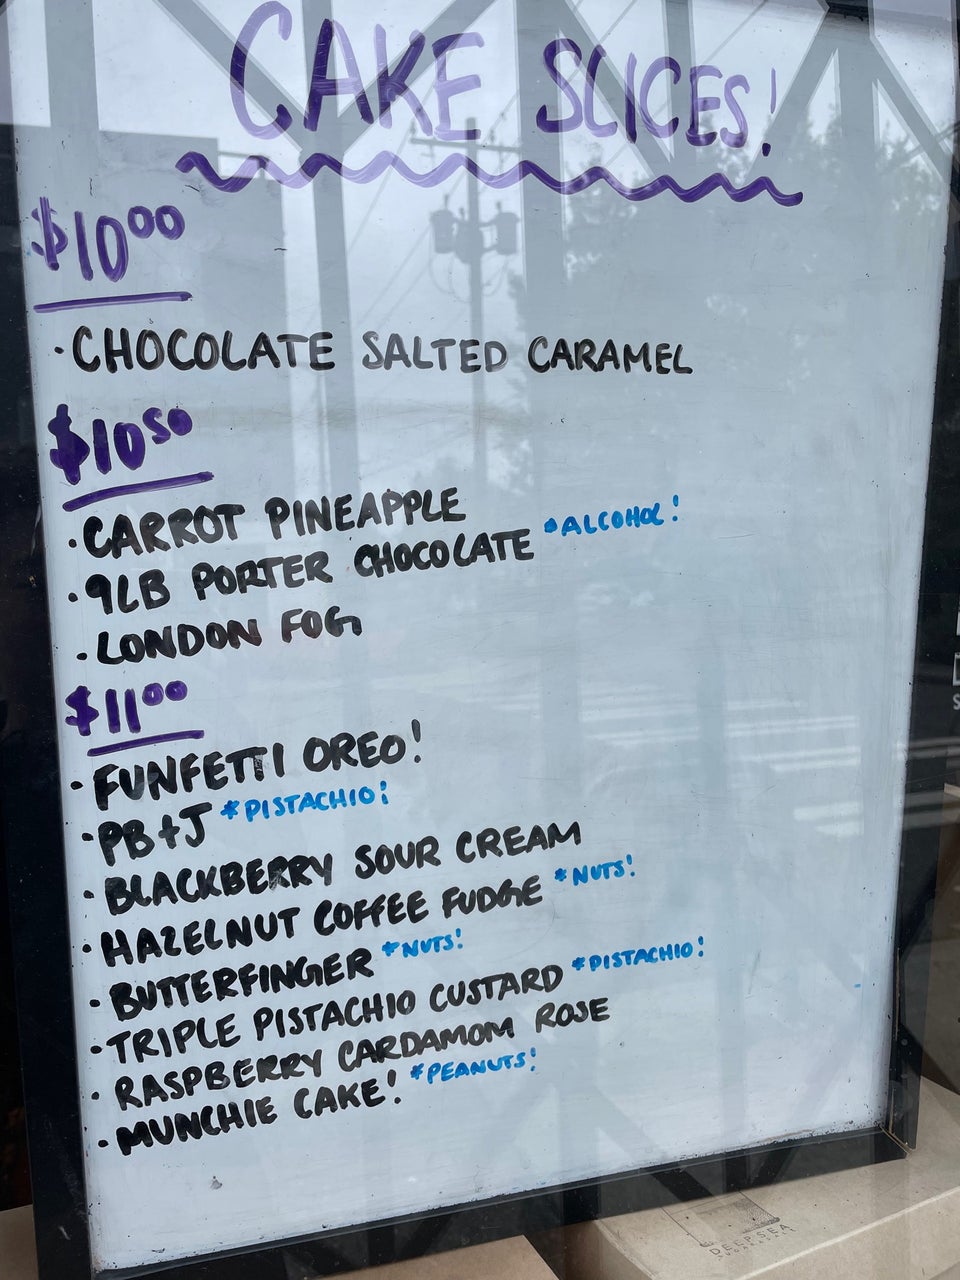 CAKE SLICES!
$10⁰⁰
· CHOCOLATE SALTED CARAMEL
$10⁵⁰
· CARROT PINEAPPLE
· 9LB PORTER CHOCOLATE *ALCOHOL!
· LONDON FOG
$11⁰⁰
· FUNFETTI OREO!
· PB+J *PISTACHIO!
· BLACKBERRY SOUR CREAM
· HAZELNUT COFFEE FUDGE *NUTS!
· BUTTERFINGER *NUTS!
· TRIPLE PISTACHIO CUSTARD *PISTACHIO!
· RASPBERRY CARDAMOM ROSE
· MUNCHIE CAKE! *PEANUTS!
DEEPSEA